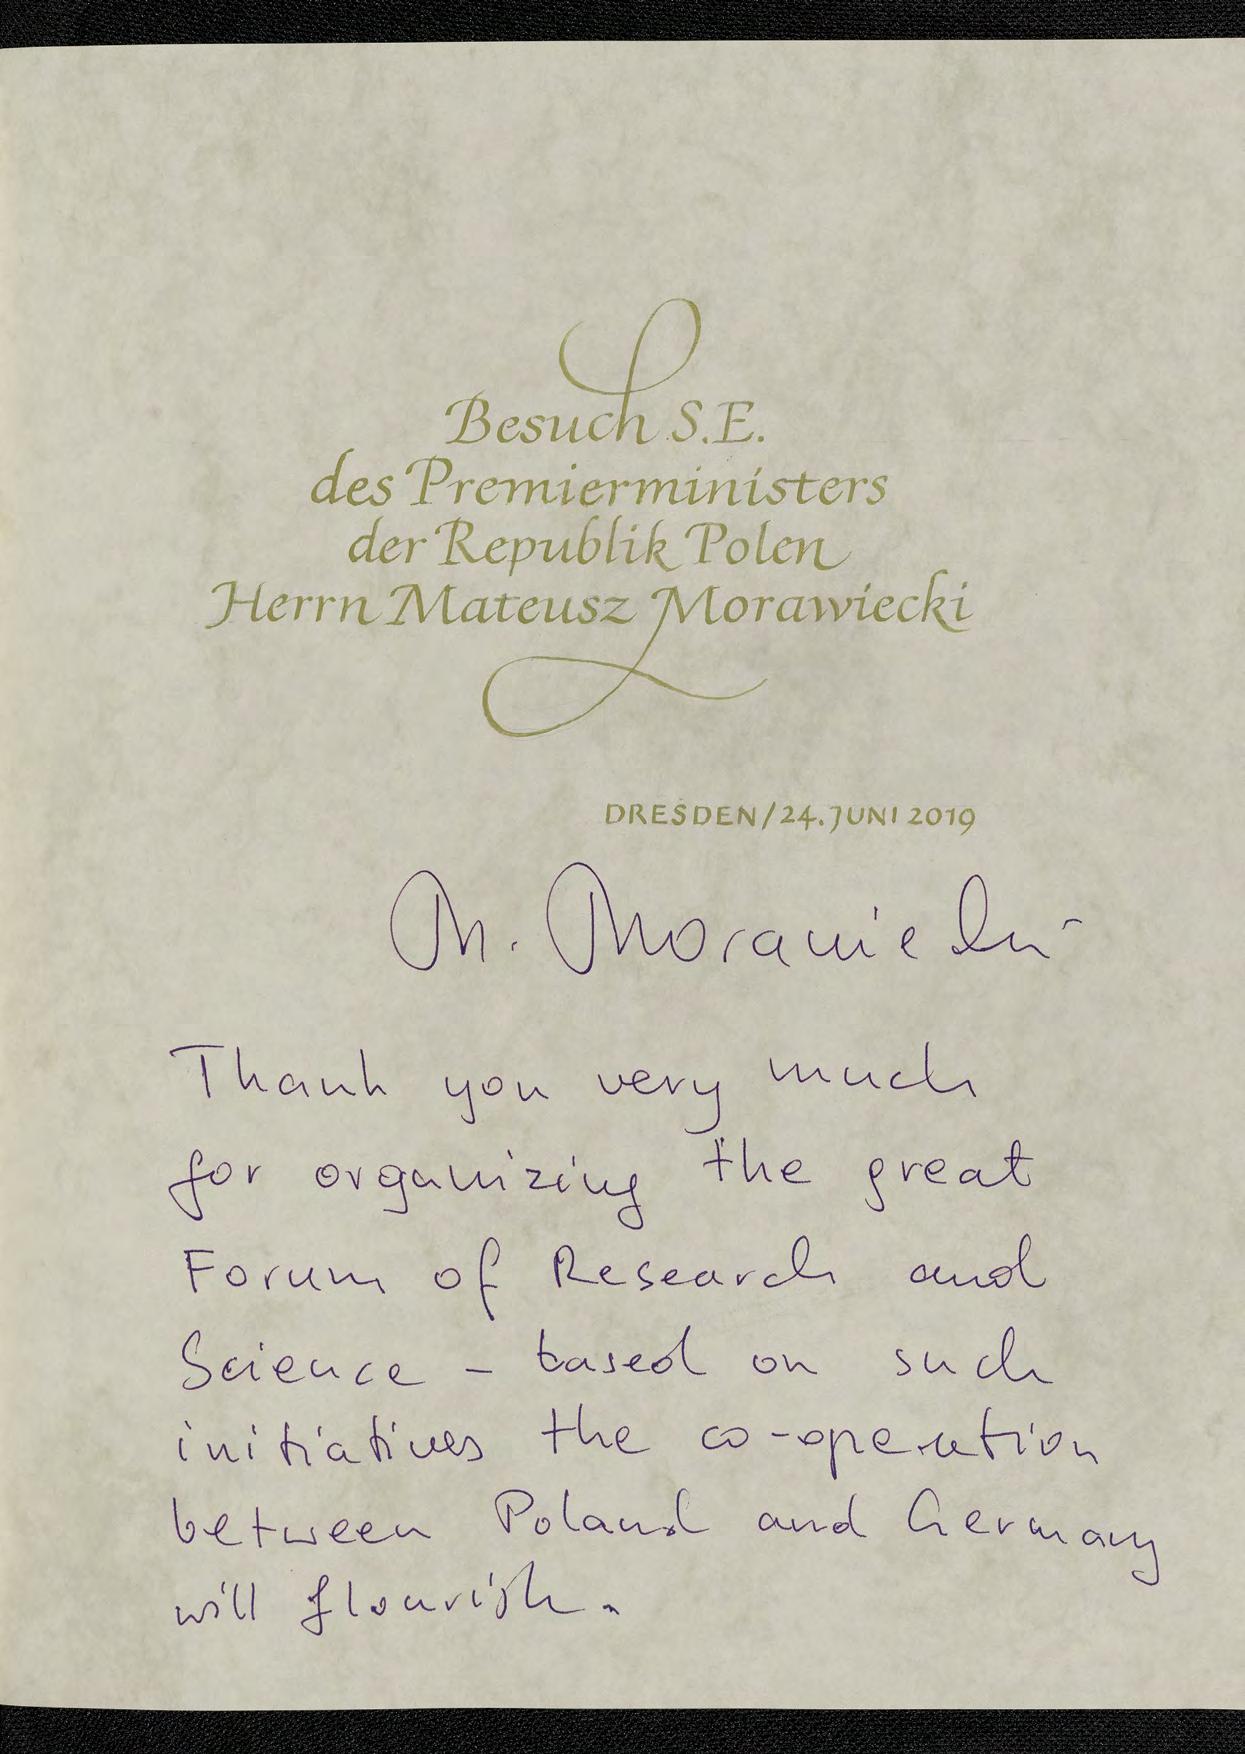 Besuch S.E.
des Premierministers
der Republik Polen
Herrn Mateusz Morawiecki
DRESDEN/24. JUNI 2019
M. Morawiecki
Thank you very much
for organizing the great
Forum of Research and
Science – based on such
initiatives the co-operation
between Poland and Germany
will flourish.